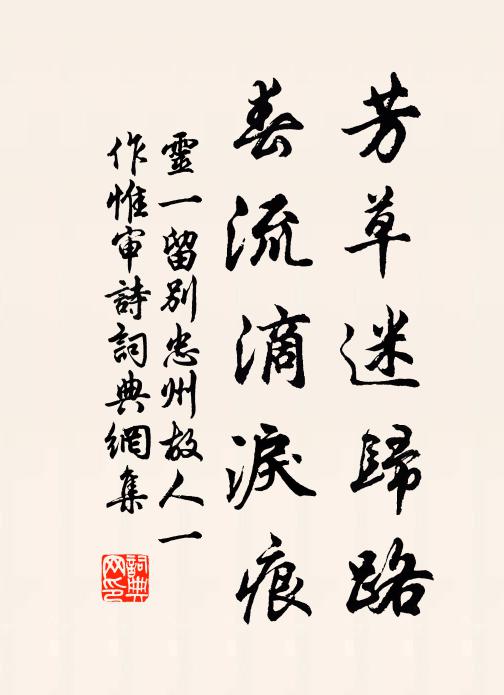 芳草迷歸路
春流滴淚痕
靈一留別忠州故人一
作惟审詩詞典網集
詞典网印